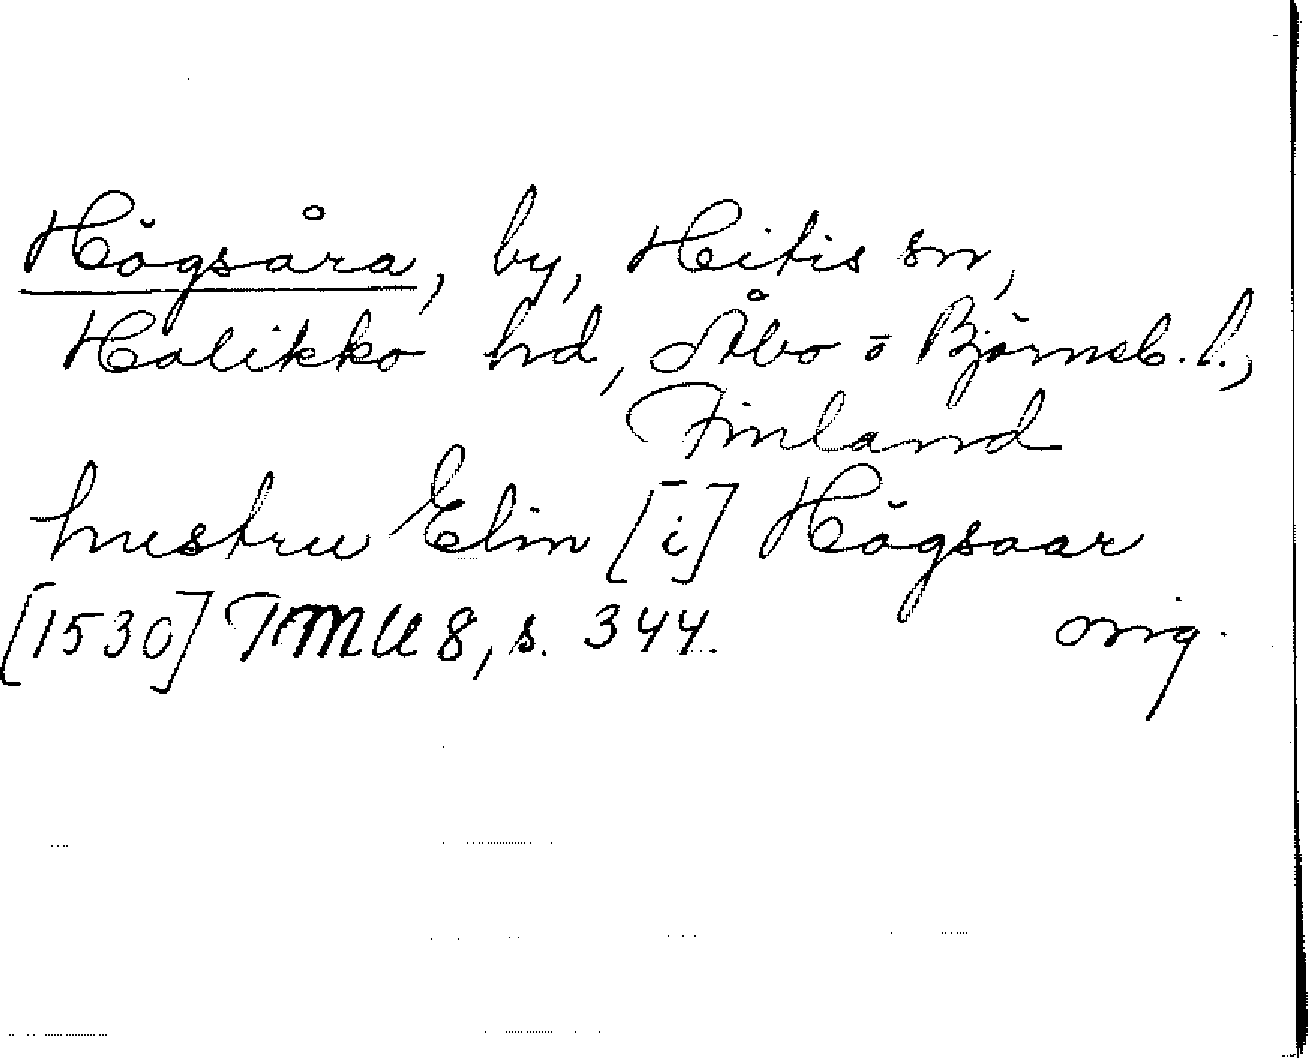 Högsåra, by, Hitis sn,
Halikko hd, Åbo o Björneb. l.,
Finland
hustru Elin [i] Högsaar
[1530] FMU 8, s. 344. orig.